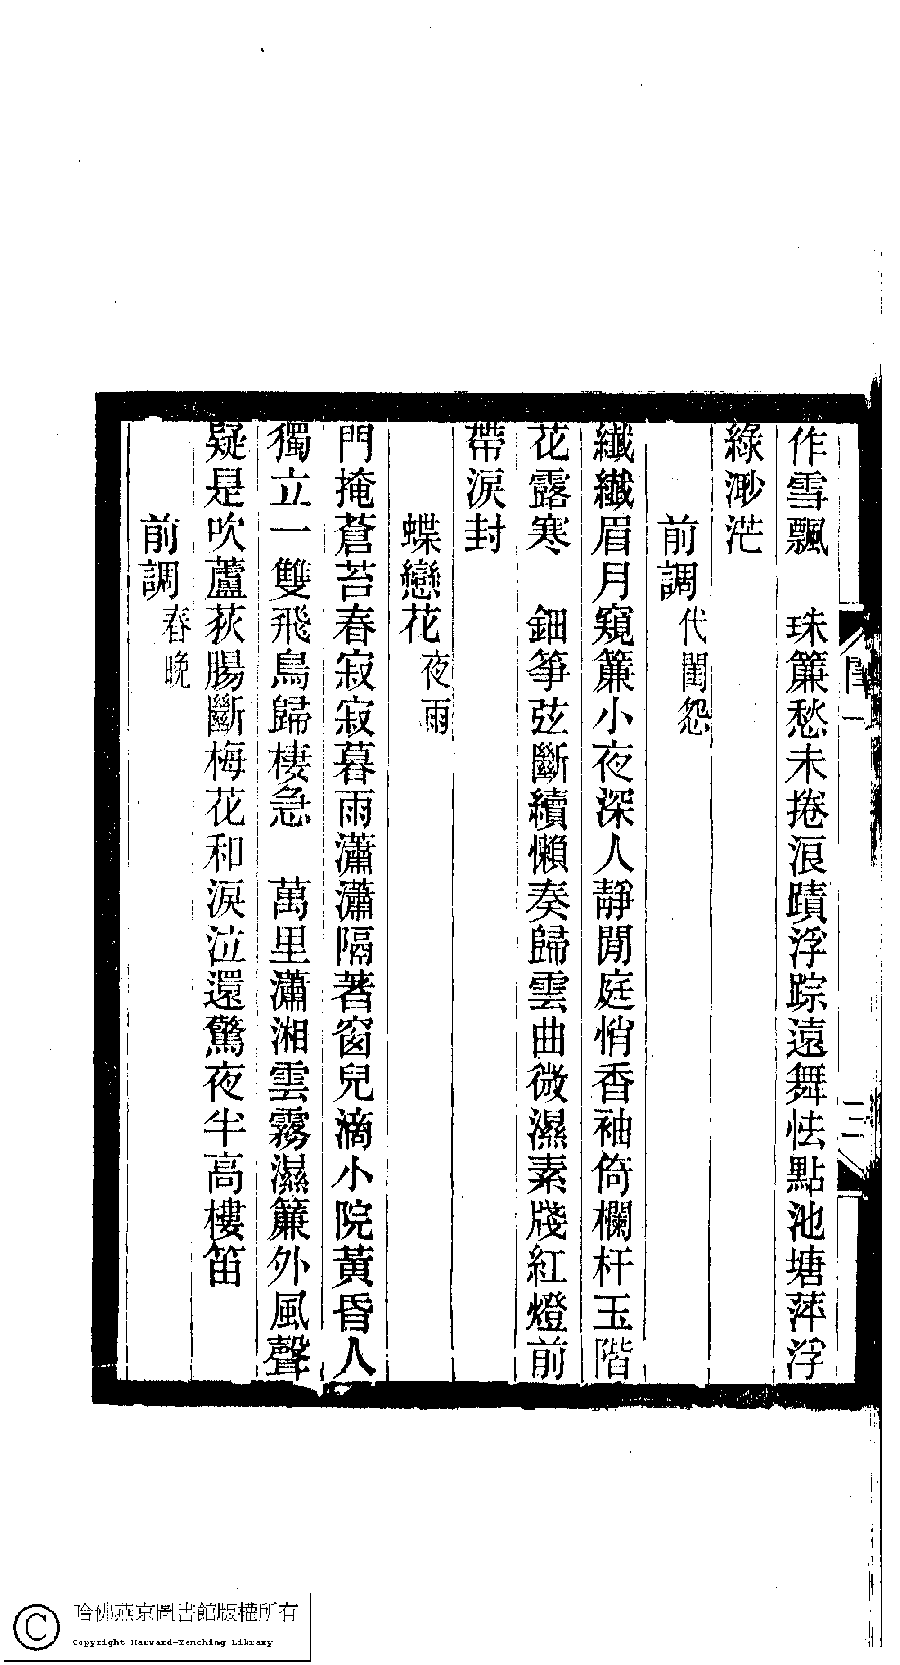 作雪飄　珠簾愁未捲浪蹟浮踪遠舞怯點池塘萍浮
綠渺茫
前調代閨怨
纖纖眉月窺簾小夜深人靜閒庭悄香袖倚欄杆玉階
花露寒　鈿箏弦斷續懶奏歸雲曲微濕素牋紅燈前
帶淚封
蝶戀花夜雨
門掩蒼苔春寂寂暮雨瀟瀟隔著窗兒滴小院黃昏人
獨立一雙飛鳥歸棲急　萬里瀟湘雲霧濕簾外風聲
疑是吹蘆荻腸斷梅花和淚泣還驚夜半高樓笛
前調春晚
三
哈佛燕京圖書館版權所有
Copyright Harvard-Yenching Library